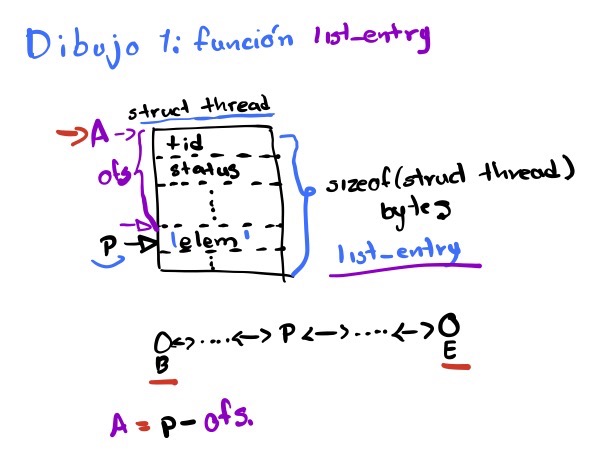 Dibujo 1: función list_entry
struct thread
→ A →
tid
ofs
status
sizeof(struct thread)
bytes
P →
'elem'
list_entry
O <-> ..... <-> P <-> ..... <-> O
B
E
A = P - ofs.